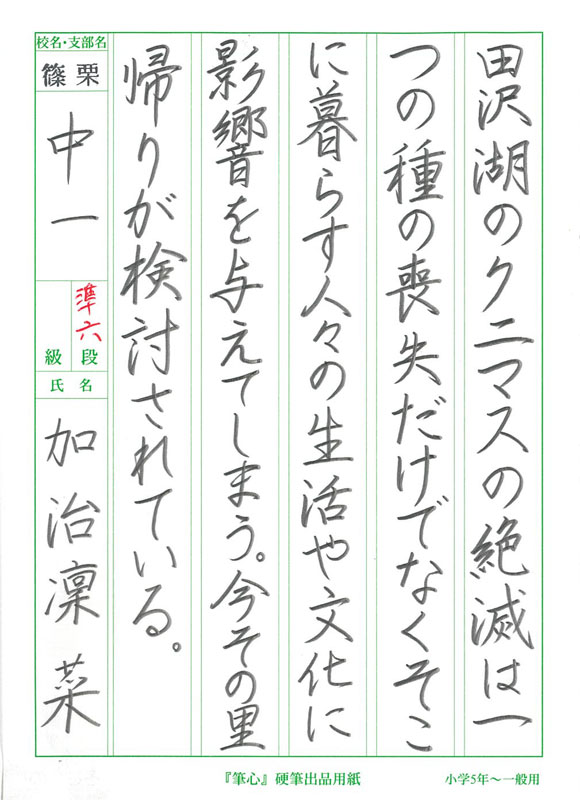 田沢湖のクニマスの絶滅は一
つの種の喪失だけでなくそこ
に暮らす人々の生活や文化に
影響を与えてしまう。今その里
帰りが検討されている。
校名・支部名
篠栗
中一
準六
段
級
氏名
加治凜菜
『筆心』硬筆出品用紙
小学5年〜一般用